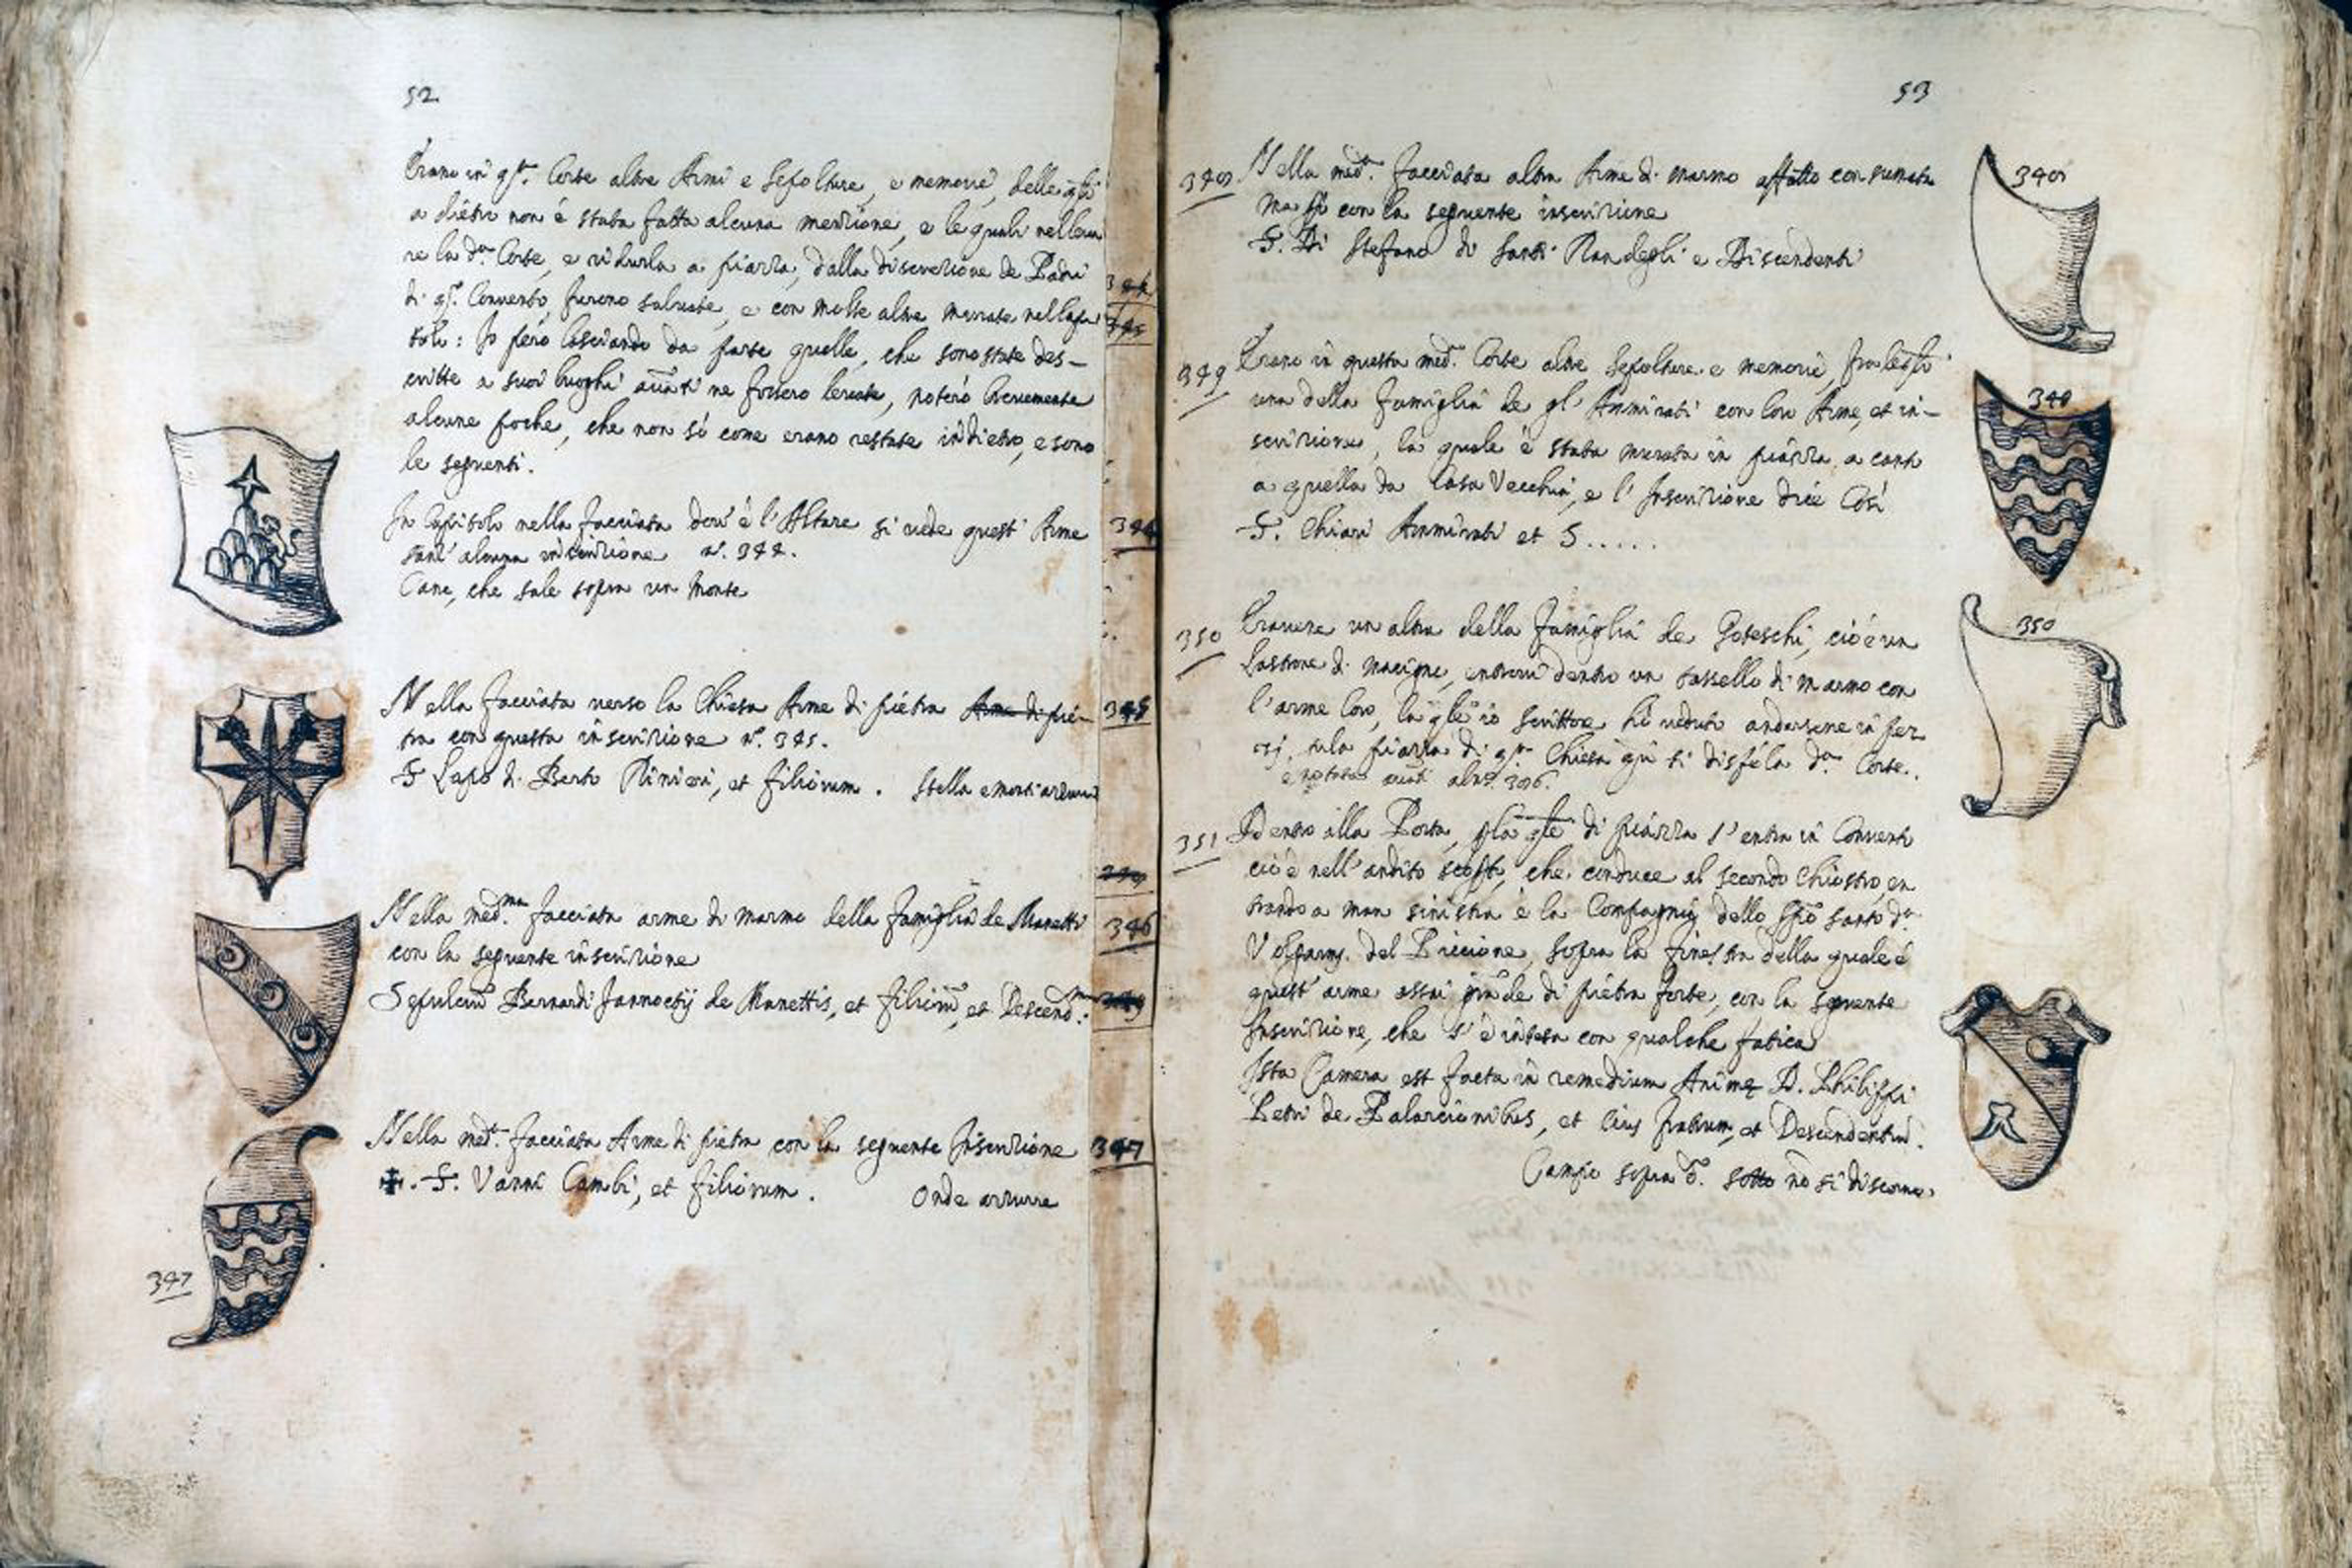 52
Erano in q.ta Corte altre Armi e Sepolture, e memorie, delle q.li
a dietro non è stata fatta alcuna menzione, e le quali nel leva
re la d.a Corte, e ridurla a piazza, dalla discrezione de Padri
di q.to Convento, furono salvate, e con molte altre murate nel Capi
tolo: Io però lasciando da parte quelle, che sono state des-
critte a suoi luoghi avanti ne fossero levate, noterò brevemente
alcune poche, che non sò come erano restate indietro, e sono
le seguenti.
In Capitolo nella facciata dov' è l'Altare si vede quest' Arme
sanz' alcuna inscrizione n.o 344.
Cane, che sale sopra un Monte
344
Nella facciata verso la Chiesa Arme di pietra Arme di pie-
tra con questa inscrizione n.o 345.
S Lapo di Berto Rinieri, et filiorum. Stella e monti azzurri
345
Nella med.ma facciata arme di marmo della famiglia de Manetti
con la seguente inscrizione
Sepulcrũ Bernardi Jannoctij de Manettis, et filiorũ, et Descend.m
346
Nella med.a facciata Arme di pietra con la seguente Inscrizione
✠. S. Vanni Cambi, et filiorum. Onde azzurre
347
347
53
348 Nella med.a facciata altra Arme di marmo affatto consumata
ma con la seguente inscrizione
S. Di Stefano di Santi Randegli e Discendenti
348
349 Erano in questa med.a Corte altre Sepolture e memorie, fra le q.li
una della famiglia de gl' Ammirati con loro Arme, et in-
scrizione, la quale è stata murata in piazza a canto
a quella da Casa Vecchia, e l' Inscrizione dice Così
S. Chiari Ammirati et S.....
349
350 Eravene un altra della famiglia de Poteschi, cioè un
lastrone di macigno, entrovi dentro un tassello di marmo con
l'arme loro, la q.le io scrittore hò veduto andarsene in pez
zi, su la piazza di q.ta Chiesa qũ si disfè la d.a Corte.
è notata avãti al n.o 306.
350
351 Dentro alla Porta, p la q.le di piazza s' entra in Convento
cioè nell' andito, che conduce al secondo Chiostro, en
trando a man sinistra è la Compagnia dello Sp.o Santo d.a
Volgarm. del Piccione, sopra la finestra della quale è
quest' arme assai grãde di pietra forte, con la seguente
Inscrizione, che s' è intesa con qualche fatica
Ista Camera est facta in remedium Anime D. Philippi
Petri de Balarcionibus, et eius fratrum, et Descendentiũ.
Campo sopra d'o. sotto nõ si discerne